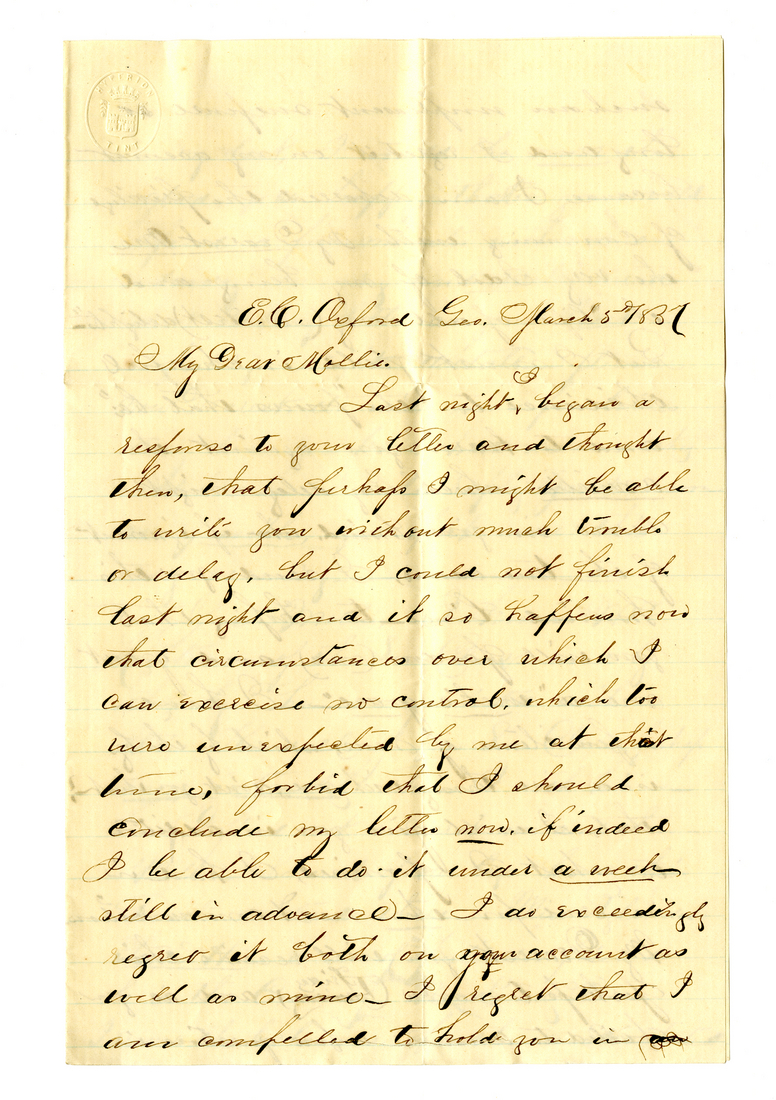 E. C. Oxford Geo. March 5th/867
My Dear Mollie.
Last night I began a
response to your letter and thought
then, that perhaps I might be able
to write you without much trouble
or delay, but I could not finish
last night and it so happens now
that circumstances over which I
can exercise no control, which too
were unexpected by me at that
time, forbid that I should
conclude my letter now, if indeed
I be able to do it under a week
still in advance — I do exceedingly
regret it both on your account as
well as mine — I regret that I
am compelled to hold you in